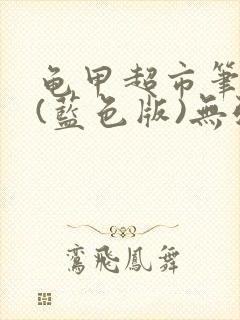 龟甲超市筆
(藍色版)無
鸞飛鳳舞